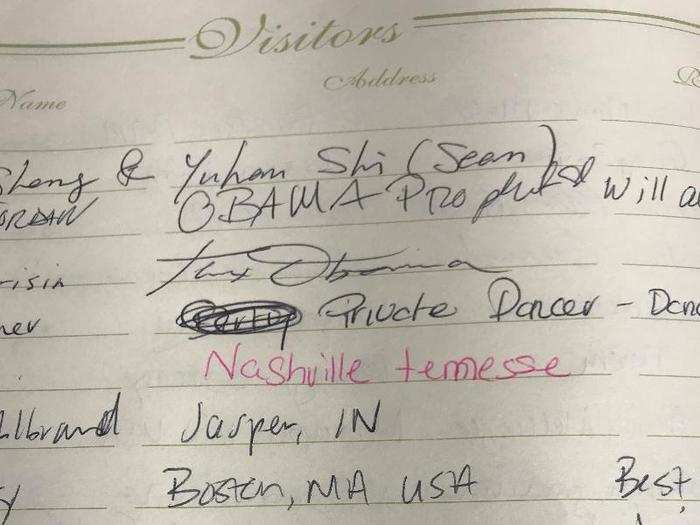 Visitors
Name Address R
Sheng & Yuhan Shi (Sean)
JORDAN OBAMA Prophet will a
risin
ner Private Dancer - Danc
Nashville temesse
llbrand Jasper, IN
y Boston, MA USA Best